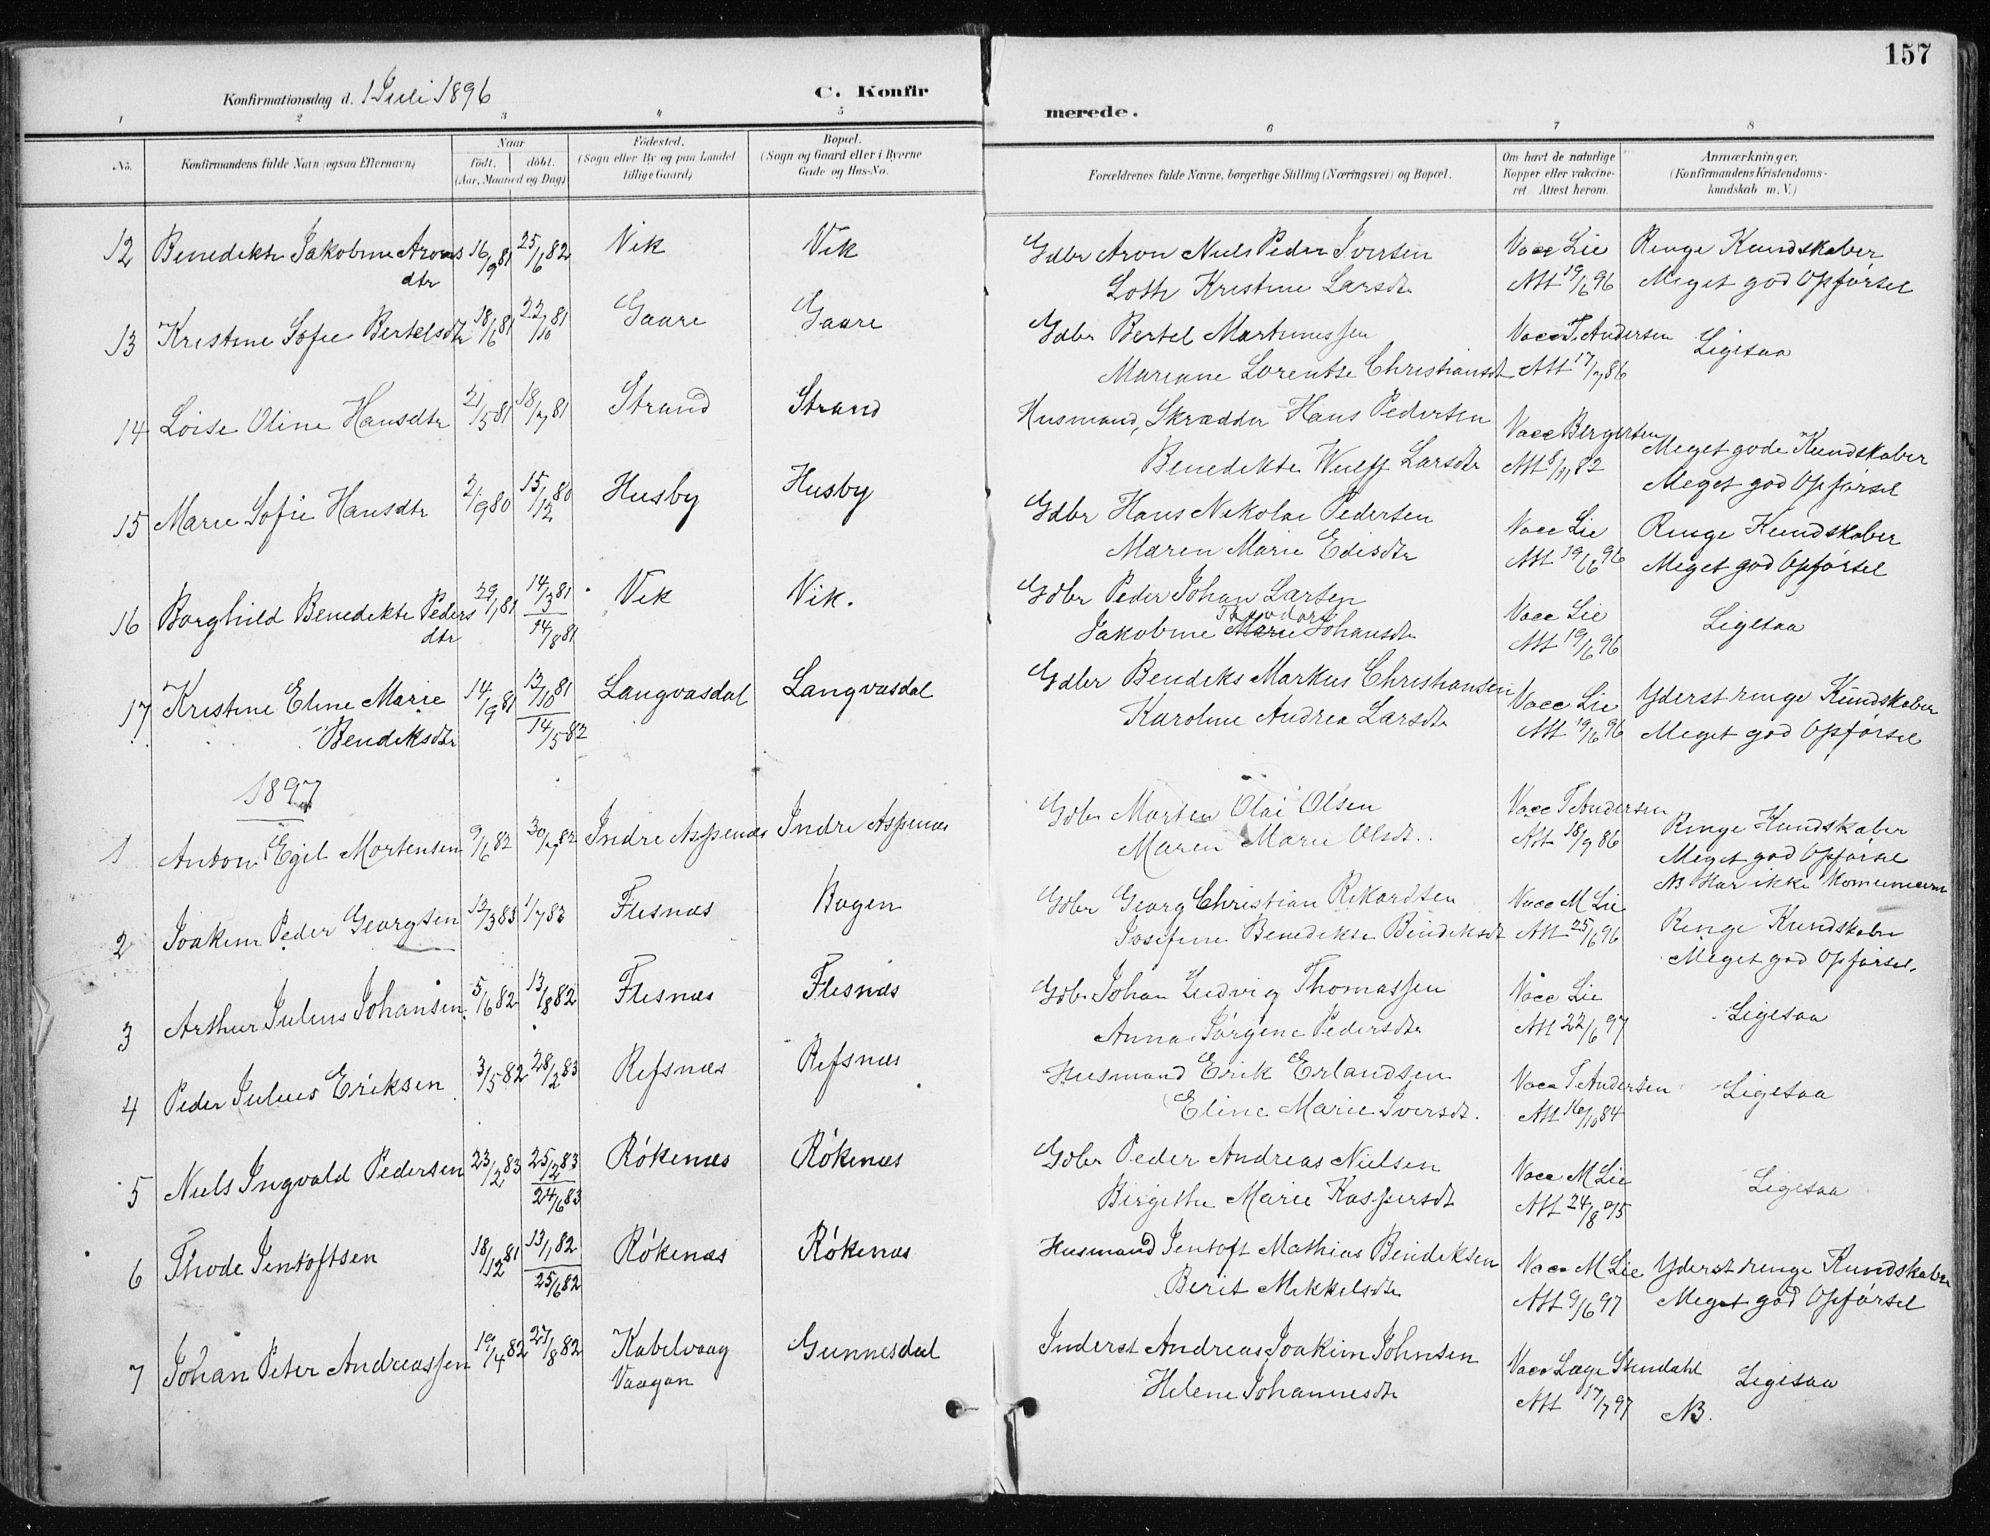 157
Konfirmationsdag d. 1 Juli 1896
C. Konfir
merede.
1 2 3 4 5 6 7 8
No. Konfirmandens fulde Navn (ogsaa Efternavn) Naar født. døbt. (Aar, Maaned og Dag) Fødested. (Sogn eller By og paa Landet tillige Gaard) Bopæl. (Sogn og Gaard eller i Byerne Gade og Hus-No. Forældrenes fulde Navne, borgerlige Stilling (Næringsvei) og Bopæl. Om havt de naturlige Kopper eller vakcineret. Attest herom. Anmærkninger. (Konfirmandens Kristendomskundskab m. V.)
12 Benedikte Jakobine Arons 16/9 81 25/6 82 Vik Vik Gdbr Aron Niels Peder Iversen Vacc Lie Ringe Kundskaber
dtr Lotte Kristine Larsdtr Att 19/6 96 Meget god Opførsel
13 Kristine Sofie Bertelsdtr 18/6 81 22/10 81 Gaare Gaare Gdbr Bertel Martinussen Vacc T. Andersen Ligesaa
Mariane Lorentse Christiansdt Att 17/7 86
14 Loise Oline Hansdtr 21/5 81 18/7 81 Strand Strand Husmand, Skrædder Hans Pedersen Vacc Bergersen Meget gode Kundskaber
Benedikte Wulff Larsdtr Att 8/11 82 Meget god Opførsel
15 Marie Sofie Hansdtr 2/9 80 15/12 80 Husby Husby Gdbr Hans Nikolai Pedersen Vacc Lie Ringe Kundskaber
Maren Marie Edisdtr Att 19/6 96 Meget god Opførsel
16 Borghild Benedikte Peders 29/1 81 14/3 81 Vik Vik. Gdbr Peder Johan Larsen Vacc Lie Ligesaa
dtr 14/8 81 Jakobine Marie Johansdtr Att 19/6 96
17 Kristine Eline Marie 14/9 81 13/10 81 Langvasdal Langvasdal Gdbr Bendeks Markus Christiansen Vacc Lie Yderst ringe Kundskaber
Bendeksdtr 14/5 82 Karoline Andrea Larsdtr Att 19/6 96 Meget god Opførsel
1897
1 Anton Egil Mortensen 9/6 82 30/7 82 Indre Aspenæs Indre Aspenæs Gdbr Morten Olai Olsen Vacc T Andersen Ringe Kundskaber
Maren Marie Olsdt. Att 18/9 86 Meget god Opførsel
NB Har ikke
2 Joakim Peder Georgsen 13/3 83 1/7 83 Flesnæs Bogen Gdbr Georg Christian Rikardsen Vacc M Lie Ringe Kundskaber
Josefine Benedikte Bendeksdt Att 25/6 96 Meget god Opførsel.
3 Arthur Julius Johansen 5/6 82 13/8 82 Flesnæs Flesnæs Gdbr Johan Ludvig Thomassen Vacc Lie Ligesaa
Anna Jørgine Pedersdtr Att 22/6 97
4 Peder Julius Eriksen 3/5 82 28/2 83 Refsnæs Refsnæs Husmand Erik Erlandsen Vacc T Andersen Ligesaa
Eline Marie Iversdt. Att 16/10 84
5 Niels Ingvald Pedersen 23/2 83 25/2 83 Røkenæs Røkenæs Gdbr Peder Andreas Nielsen Vacc M Lie Ligesaa
24/6 83 Birgithe Marie Kaspersdt Att 24/8 95
6 Thode Jentoftsen 18/12 81 13/1 82 Røkenæs Røkenæs Husmand Jentoft Mathias Bendeksen Vacc M Lie Yderst ringe Kundskaber
25/6 82 Berit Mikkelsdtr Att 9/6 97 Meget god Opførsel
7 Johan Peter Andreassen 19/4 82 27/8 82 Kabelvaag Gunnesdal Inderst Andreas Joakim Johnsen Vacc Læge Stendahl Ligesaa
Vaagan Helene Johannesdtr Att 17/7 97 NB.